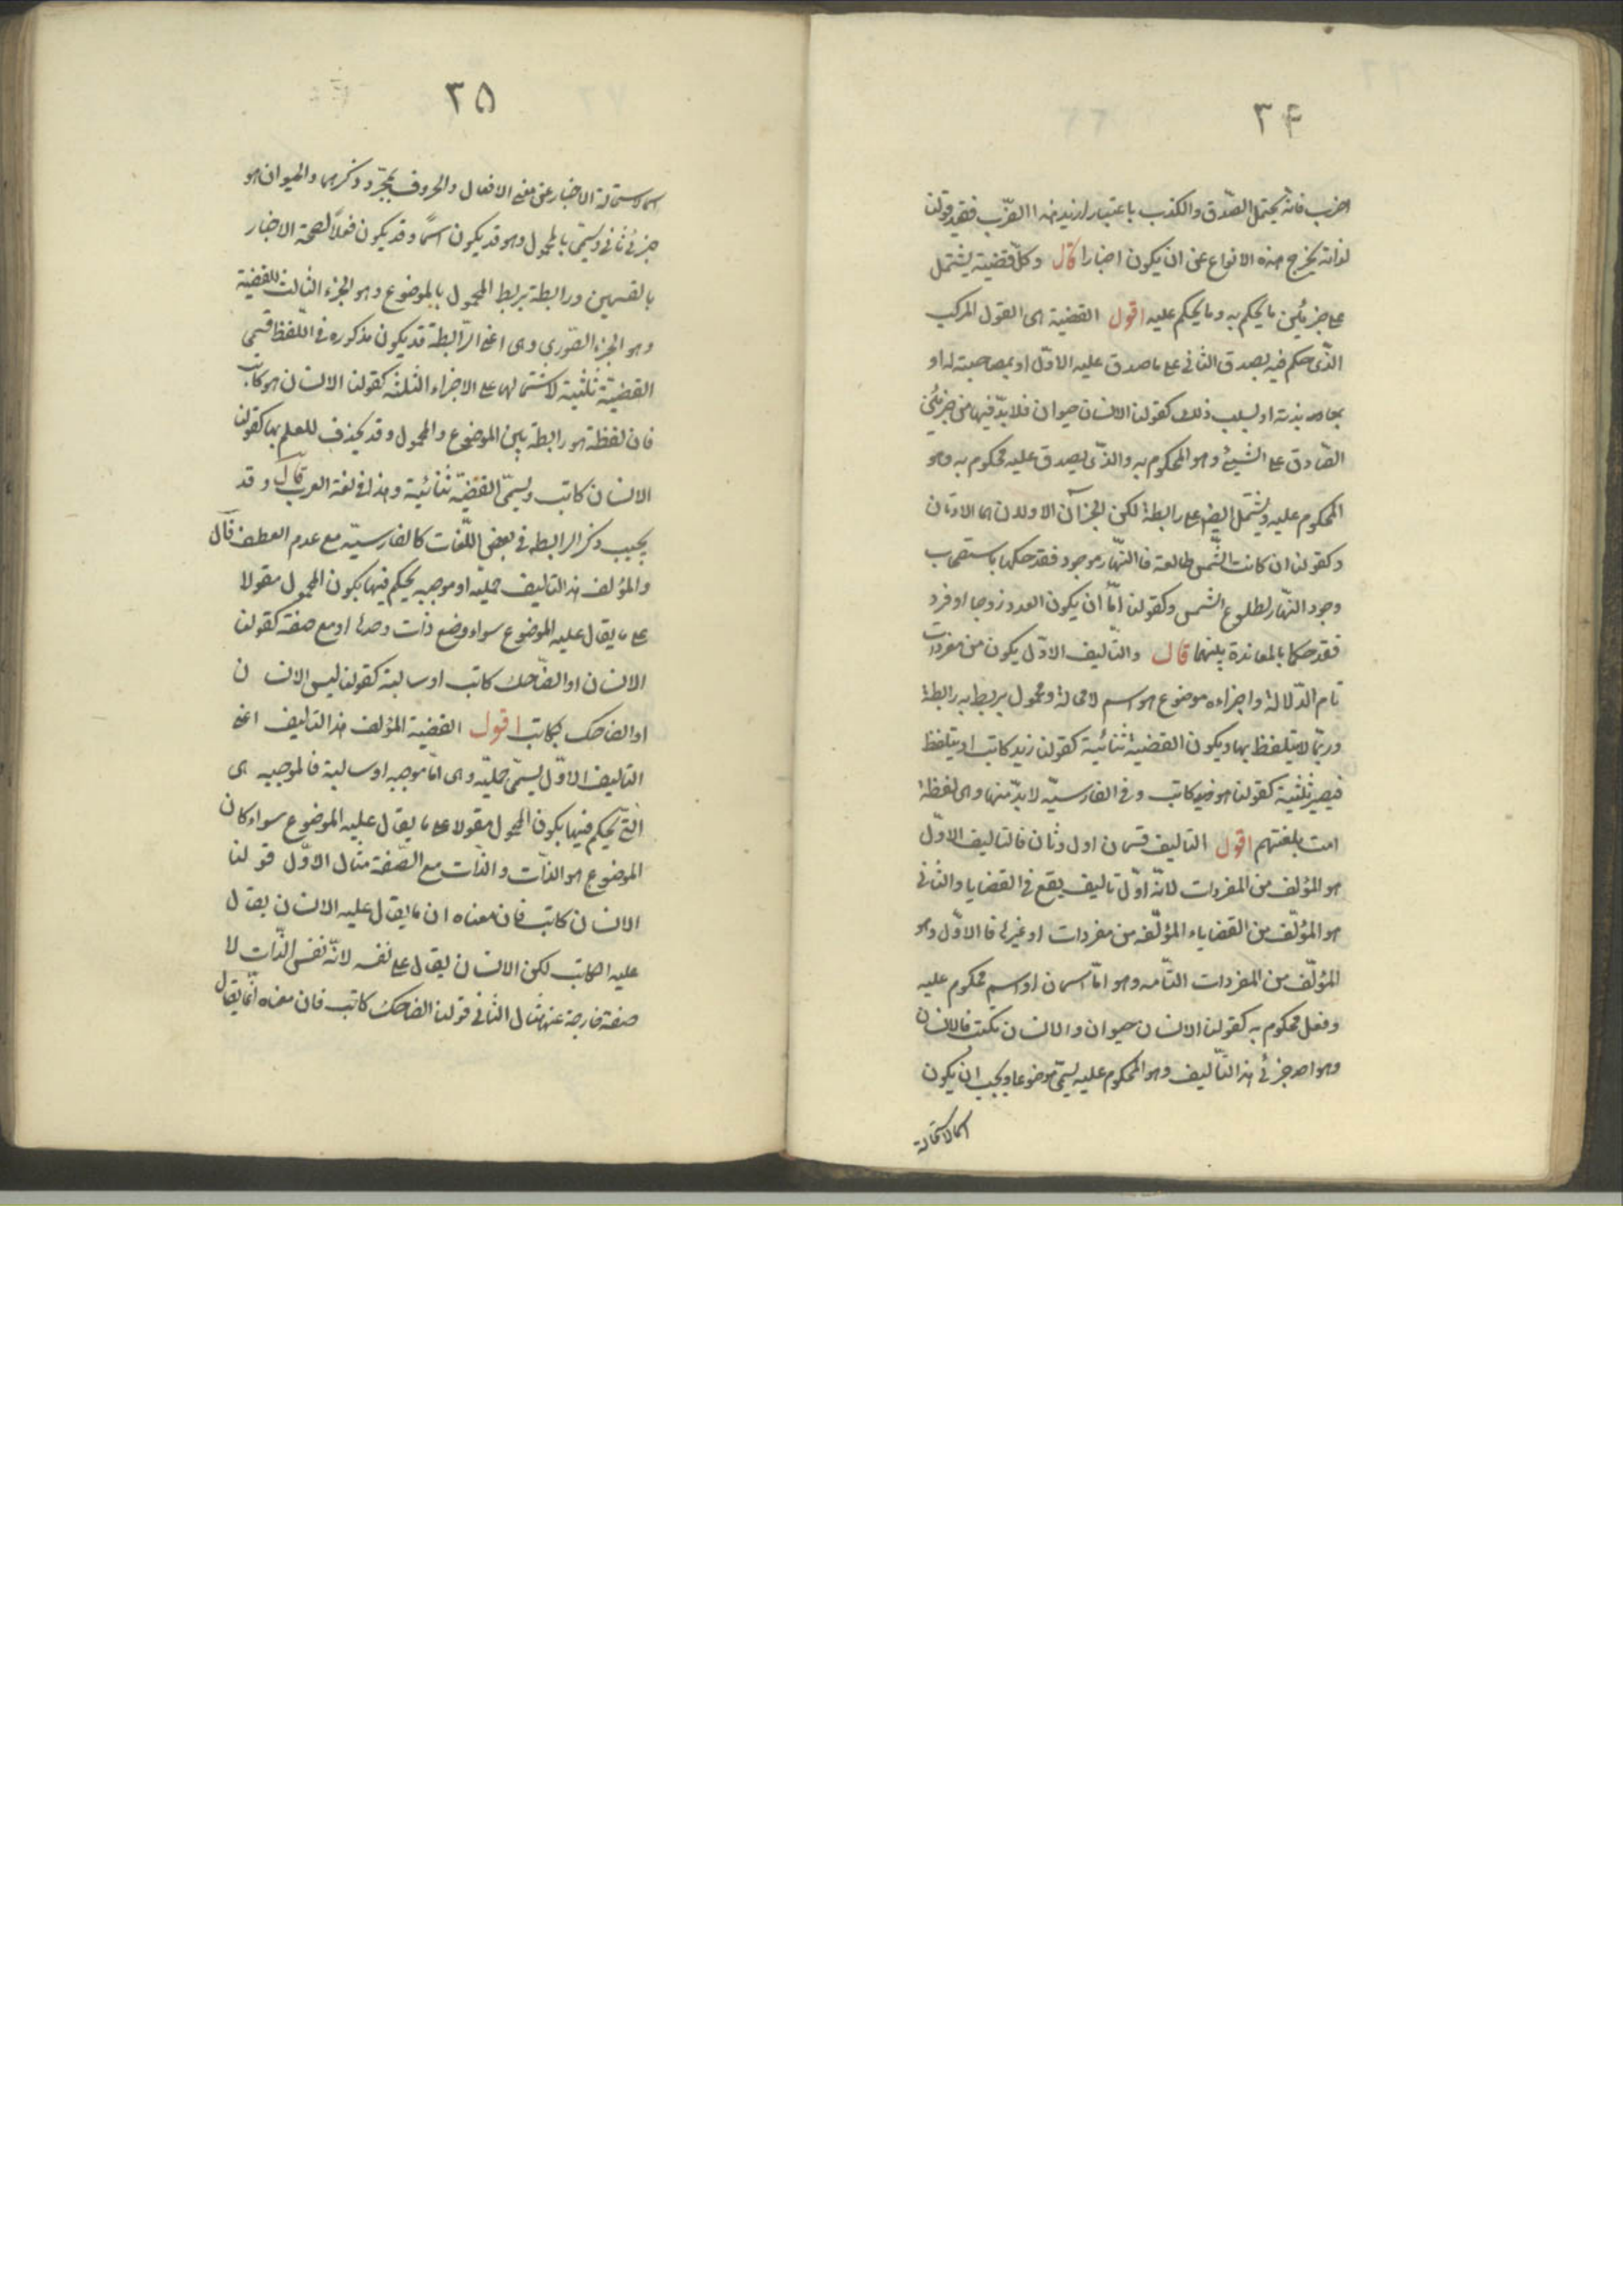 ٣۴
اضرب فانه يحتمل الصّدق والكذب باعتبار اريد منه الضّرب فقيد قولنا
لذاته يخرج هذه الانواع عن ان يكون اخبارا قال وكلّ قضية يشتمل
على جزئين ما يحكم به وما يحكم عليه اقول القضية هى القول المركب
الذّى حكم فيه بصدق الثانى على ما صدق عليه الاوّل او بمصاحبته له او
بمعاندته او بسلب ذلك كقولنا الانسان حيوان فلا بدّ فيها من جزئين
الصّادق على الشيئ وهو المحكوم به والذّى يصدق عليه محكوم به وهو
المحكوم عليه ويشتمل ايضا على رابطة لكن الجزآن الاولان هما المادتان
وكقولنا ان كانت الشّمس طالعة فالنّهار موجود فقد حكمنا باستصحاب
وجود النّهار لطلوع الشمس وكقولنا امّا ان يكون العدد زوجا او فردا
فقد حكما بالمعاندة بينهما قال والتّاليف الاوّل يكون من مفردات
تام الدّلالة واجزاءه موضوع هو اسم لا محالة ومحمول يربط به رابطة
وربّما لا يتلفظ بها ويكون القضية ثنائية كقولنا زيد كاتب او يتلفظ
فيصير ثلثية كقولنا هو ضد كاتب وفى الفارسيّه لا بدّ منها وهى لفظة
است بلغتهم اقول التاليف قسمان اول وثان فالتاليف الاوّل
هو المؤلف من المفردات لانّه اوّل تاليف يقع فى القضايا والثانى
هو المؤلّف من القضايا المؤلّفه من مفردات او غيرها فالاوّل وهو
المؤلّف من المفردات التّامه وهو امّا اسمان او اسم محكوم عليه
وفعل محكوم به كقولنا الانسان حيوان والانسان يكتب فالانسان
وهو احد جزئى هذا التّأليف وهو المحكوم عليه يسمّى موضوعا ويجب ان يكون
اسما لاستحالة
٣۵
اسما لاستحالة الاخبار عن معنى الافعال والحروف بمجرّد ذكرهما والحيوان هو
جزئ ثانى ويسمّى بالمحمول وهو قد يكون اسمًا وقد يكون فعلًا لصحة الاخبار
بالقسمين ورابطة يربط المحمول بالموضوع وهو الجزء الثالث للقضية
وهو الجزء الصّورى وهى اعنى الرّابطة قد يكون مذكوره فى اللّفظ فتسمى
القضيّة ثلثية لاشتمالها على الاجزاء الثلثة كقولنا الانسان هو كاتب
فان لفظة هو رابطة بين الموضوع والمحمول وقد يحذف للعلم بها كقولنا
الانسان كاتب ويسمّى القضيّة ثنائية وهذا فى لغة العرب قال وقد
يجيب ذكر الرابطه فى بعض اللّغات كالفارسيّه مع عدم العطف قال
والمؤلف هذا التاليف حمليّه او موجبه يحكم فيها بكون المحمول مقولا
على ما يقال عليه الموضوع سواء وضع ذات وحدها او مع صفة كقولنا
الانسان او الضّاحك كاتب او سالبة كقولنا ليس الانسان
او الضاحك بكاتب اقول القضية المؤلف هذا التاليف اعنى
التاليف الاوّل يسمّى حمليّه وهى امّا موجبه او سالبة فالموجبه هى
التّى يحكم فيها بكون المحمول مقولا على ما يقال عليه الموضوع سواء كان
الموضوع هو الذّات والذّات مع الصّفة مثال الاوّل قولنا
الانسان كاتب فان معناه ان ما يقال عليه الانسان يقال
عليه الكاتب لكن الانسان يقال على نفسه لانّه نفس الذّات لا
صفة خارجة عنها مثال الثانى قولنا الضاحك كاتب فان معناه انّما يقال